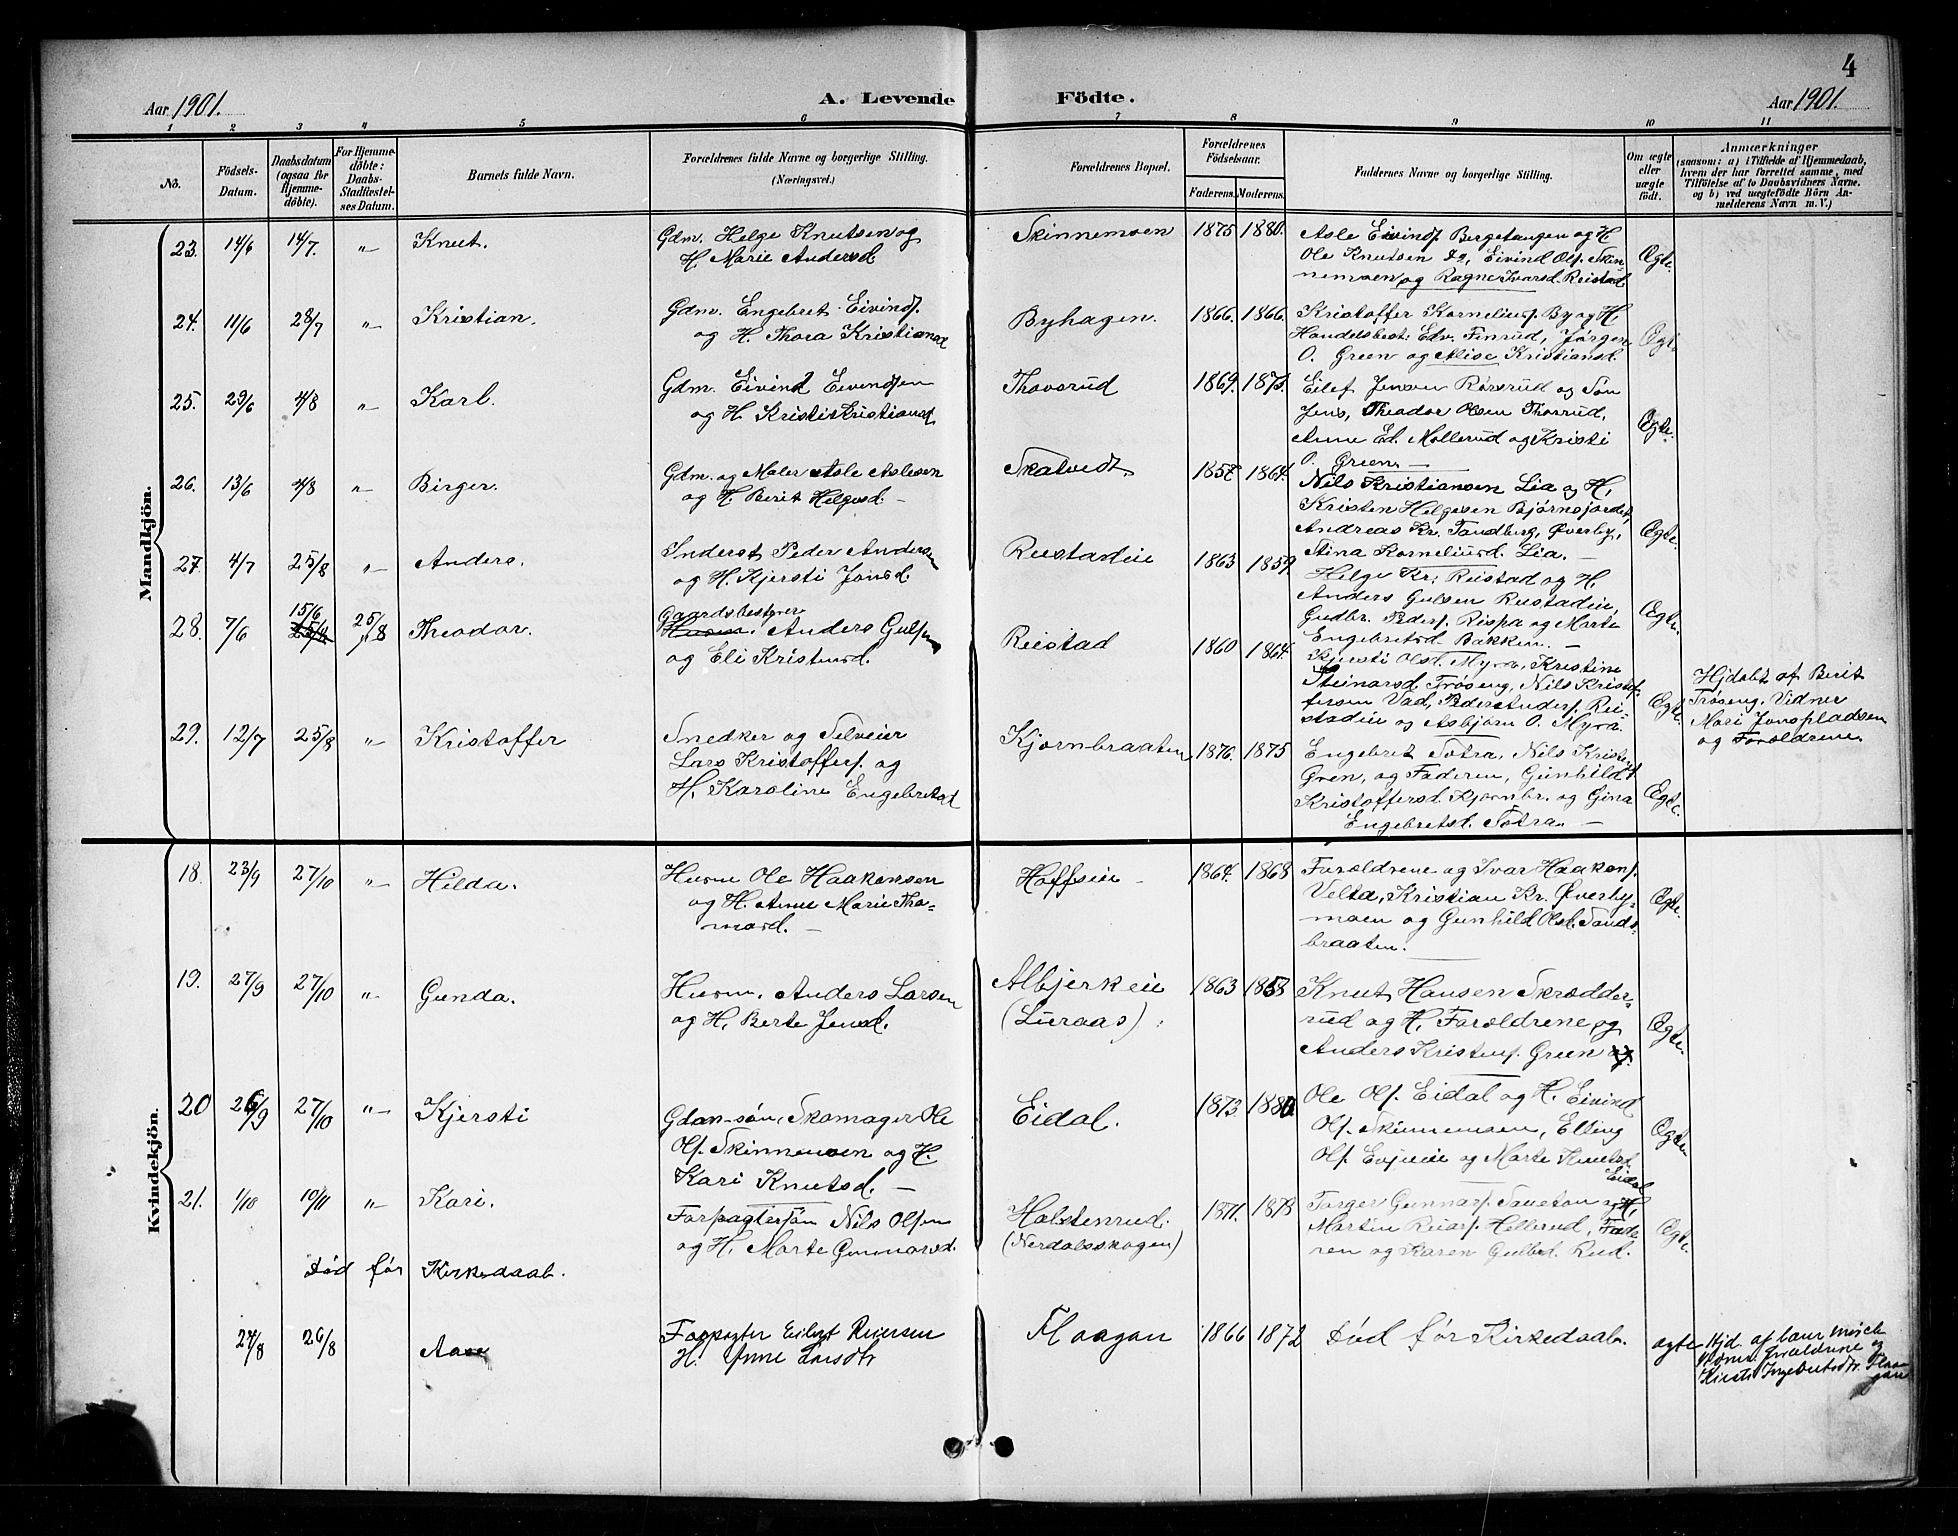 4
Aar 1901. A. Levende Födte. Aar 1901.
1 2 3 4 5 6 7 8 9 10 11
No.
Födsels-
Datum.
Daabsdatum
(ogsaa for
Hjemme-
döbte).
For Hjemme-
döbte:
Daabs-
Stadfæstel-
ses Datum.
Barnets fulde Navn.
Forældrenes fulde Navne og borgerlige Stilling.
(Næringsvei.)
Forældrenes Bopæl.
Forældrenes
Födselsaar.
Faderens. Moderens.
Faddernes Navne og borgerlige Stilling.
Om ægte
eller
uægte
födt.
Anmærkninger
(saasom: a) i Tilfælde af Hjemmedaab,
hvem der har forrettet samme, med
Tilföielse af to Daabsvidners Navne.
og b) ved uægtefödte Börn An-
melderens Navn m. V.)
Mandkjön.
23. 14/6 14/7. " Knut.
Gdm. Helge Knutsen og
H. Marie Andersd.
Skinnemoen 1875 1880.
Asle Eivinds. Bergetangen og H.
Ole Knutsen Do, Eivind Ols. Skin-
nemoen og Ragne Ivarsd. Reistad
Ægte.
24. 11/6 28/7 " Kristian.
Gdm. Engebret Eivinds.
og H. Thora Kristiansd
Byhagen. 1866. 1866.
Kristoffer Kornelius. By og H.
Handelsbest. Edv. Finrud, Jørgen
O. Green og Alise Kristiansd.
Ægt.
25. 29/6 4/8 " Karl.
Gdm. Eivind Eivindsen
og H. Kristi Kristiansd
Thovsrud 1869. 1875.
Eilef Jensen Rørsrud og Søn
Jens, Theodor Olsen Thorrud,
Anne Ed. Møllerud og Kristi
O. Green.
Ægte.
26. 13/6 4/8 " Birger.
Gdm. og Maler Asle Aslesen
og H. Berit Helgesd.
Skatvedt. 1857. 1864.
Nils Kristiansen Lia og H.
Kristen Helgesen Bjørnsjordet,
Andreas Kr. Tandberg, Øverby,
Stina Korneliusd. Lia.
Ægte.
27. 4/7 25/8 " Anders.
Inderst Peder Andersen
og H. Kjersti Jonsd.
Reistadeie 1863 1859.
Helge Kr. Reistad og H.
Anders Gulsen Reistadeie,
Gudbr. Peders. Rispa og Marte
Engebretsd Bakken.
Ægte.
28. 7/6 15/6 25/8 25/8 Theodor.
Gaardsbestyrer
Husm. Anders Gulsen
og Eli Kristensd.
Reistad 1860 1864.
Kjersti Olsd. Myra, Kristine
Steinarsd. Trøseng, Nils Kristof-
fersen Vad, Peder Anders. Rei-
stadeie og Asbjørn O. Myra.
Ægte.
Hjdøbt af Berit
Trøseng. Vidner
Mari Jonspladsen
og Forældrene.
29. 12/7 25/8 " Kristoffer
Snedker og Selveier
Lars Kristoffers. og
H. Karoline Engebretsd
Kjørnbraaten 1876. 1875
Engebret Sotra, Nils Kristens.
Gren, og Faderen, Gunhild
Kristoffersd. Kjørnbr. og Gina
Engebretsd. Sotra.
Ægte.
Kvindekjön.
18. 23/9 27/10 " Hilda.
Husm Ole Haakensen
og H. Anne Marie Tho-
masd.
Hoffseie 1864. 1868
Forældrene og Ivar Haakens.
Velta, Kristian Kr. Øverby-
moen og Gunhild Olsd. Sands-
braaten.
Ægte.
19. 27/9 27/10 " Gunda.
Husm. Anders Larsen
og H. Berte Jensd.
Albjerkeie
(Luraas). 1863 1858
Knut Hansen Skrædder-
rud og H. Forældrene og
Anders Kristens. Green
Ægte.
20 26/9 27/10 " Kjersti
Gdm-søn, Skomager Ole
Ols. Skinnemoen og H.
Kari Knutsd.
Eidal. 1873 1880
Ole Ols. Eidal og H. Eivind
Ols. Skinnemoen, Elling
Ols. Evjueie og Marte Knutsd.
Eidal
Ægte
21. 1/10 10/11 " Kari.
Forpagtersøn Nils Olsen
og H. Marte Gunnarsd.
Halstenrud.
(Nerdalsskogen) 1871. 1878
Torger Gunnars. og H.
Martin Reiars. Hellerud, Fade-
ren og Karen Gulbd. Rud.
Ægte.
Død før Kirkedaab.
27/8 26/8 Aase
Forpagter Eilert Reiersen
H. Anne Larsdtr
Flaagan 1866 1872
Død før Kirkedaab.
ægte
Hjd. af
Vidner forældrene og
Kirsti Ingebretsdtr. Flaa-
gan